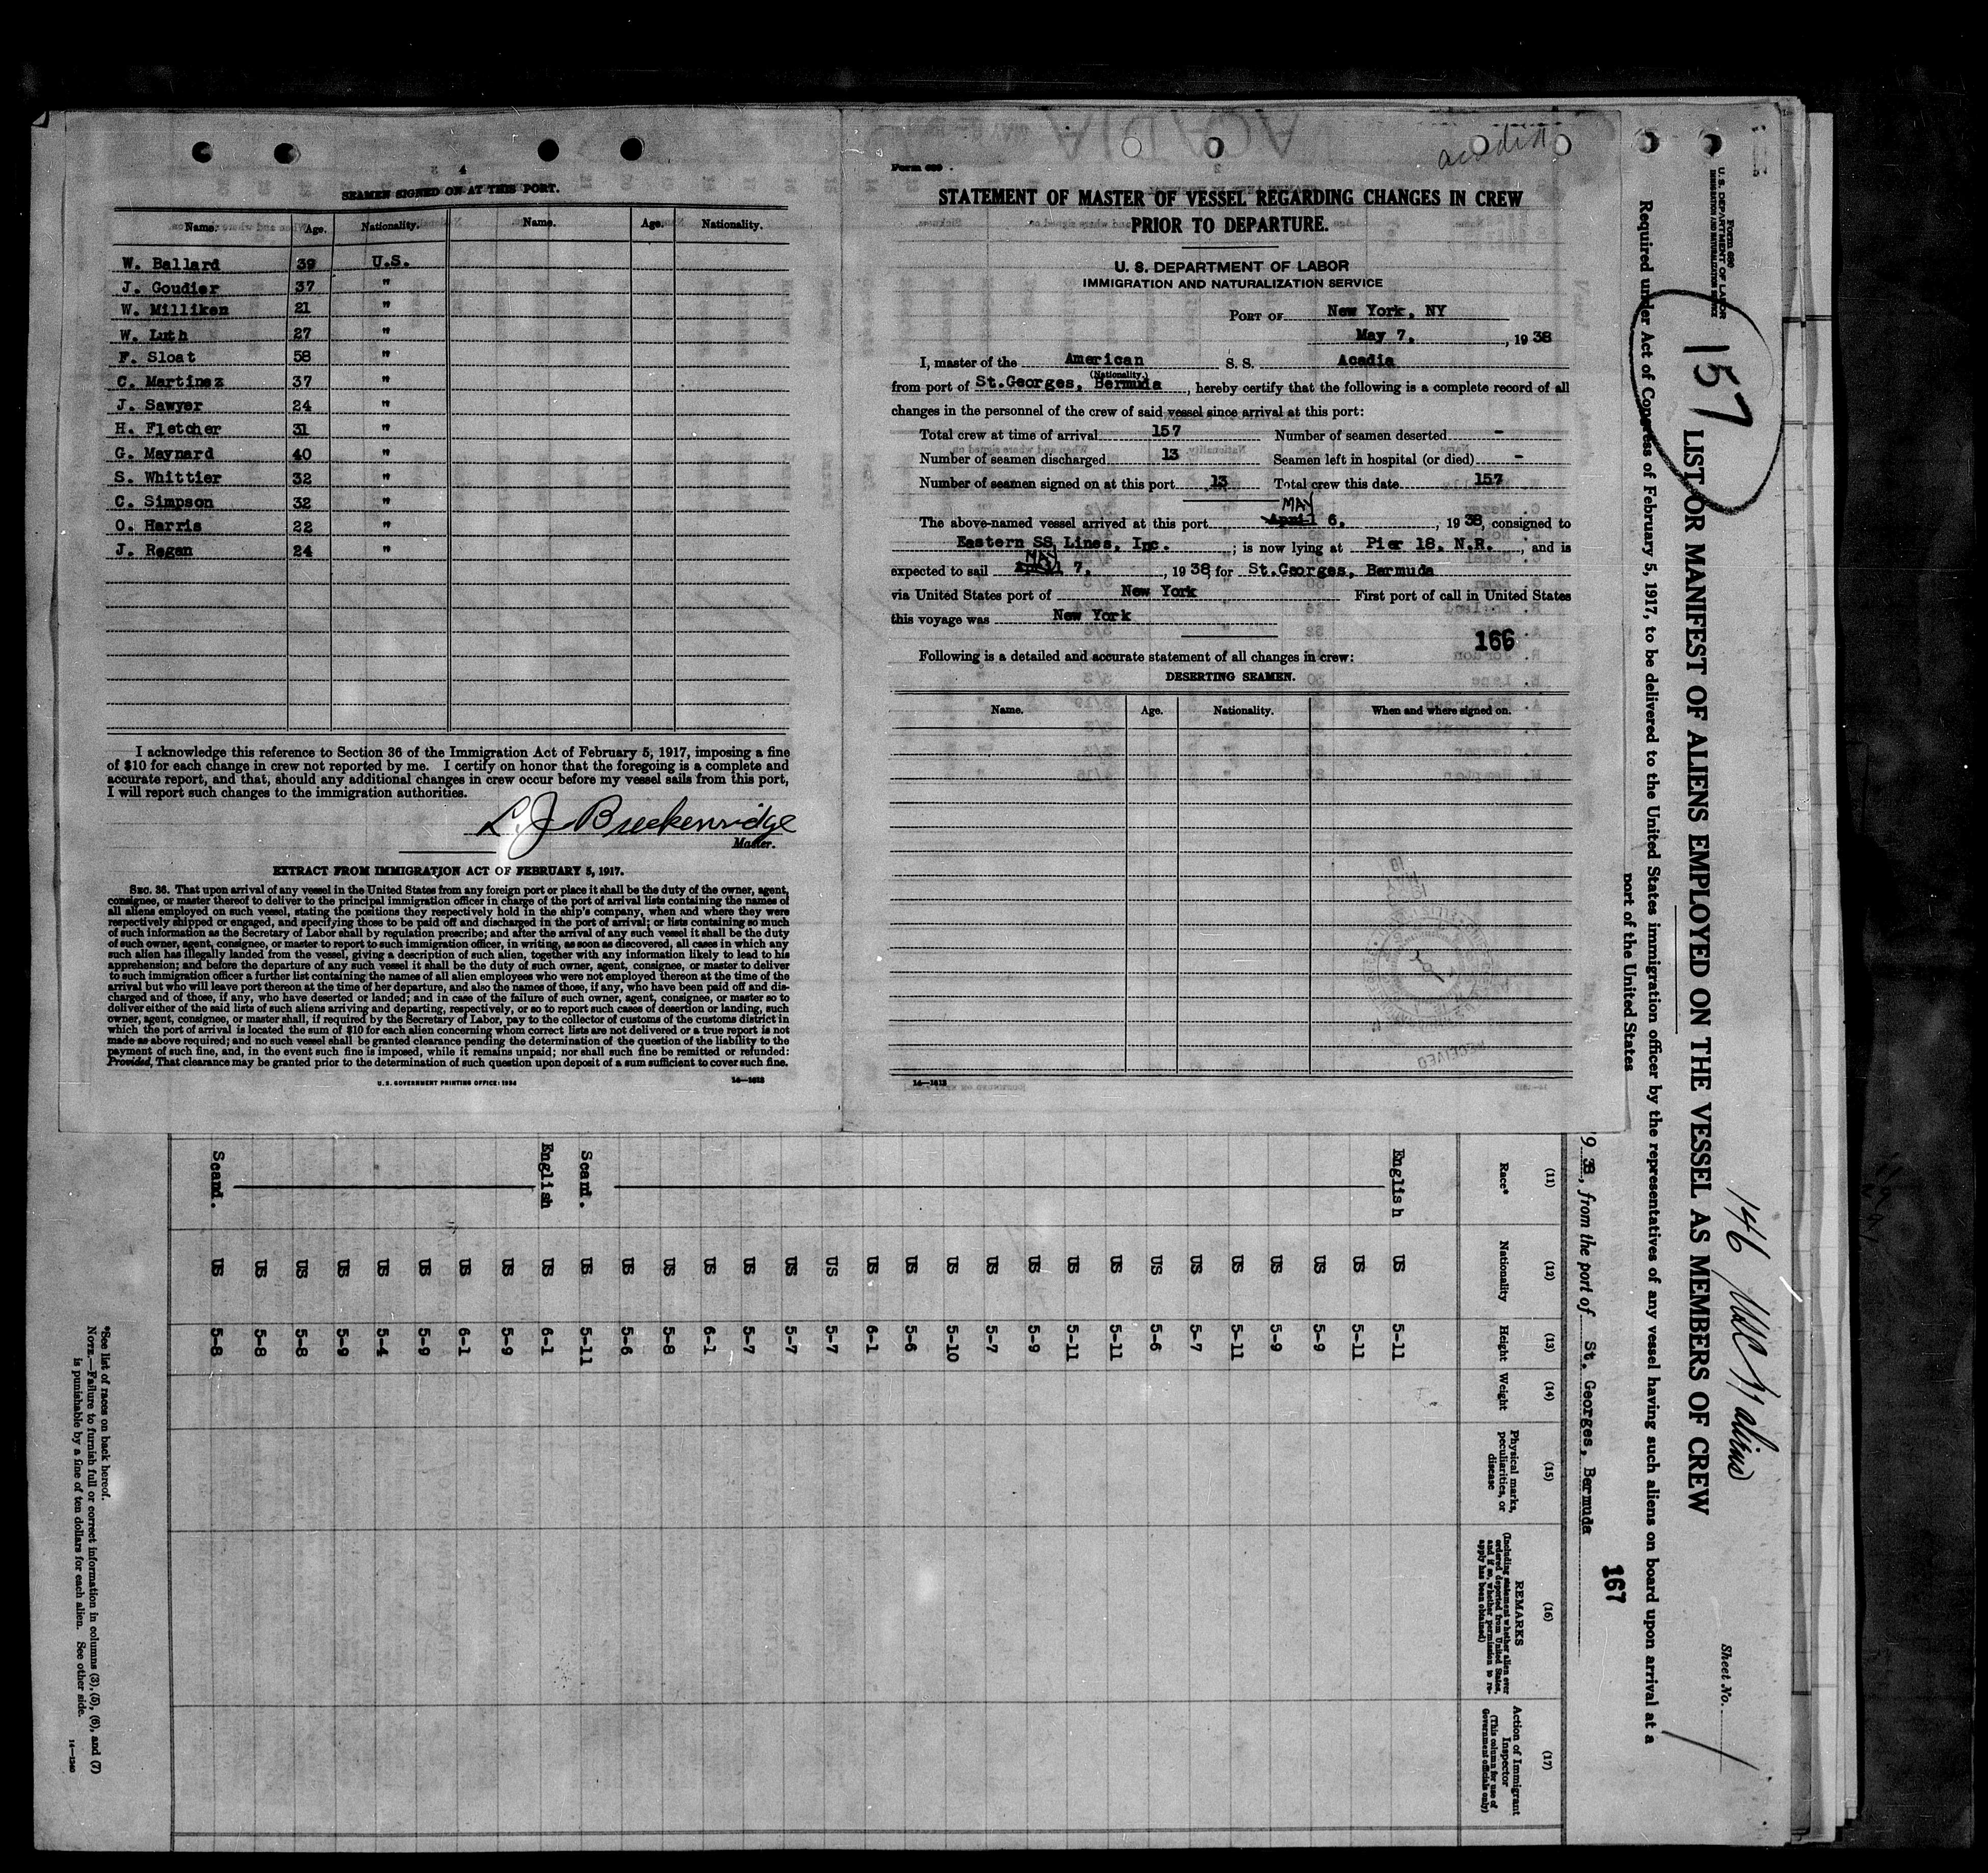 4
SEAMEN SIGNED ON AT THIS PORT.
Name. Age. Nationality. Name. Age. Nationality.
W. Ballard 39 U.S.
J. Goudier 37 "
W. Milliken 21 "
W. Luth 27 "
F. Sloat 58 "
C. Martinez 37 "
J. Sawyer 24 "
H. Fletcher 31 "
G. Maynard 40 "
S. Whittier 32 "
C. Simpson 32 "
O. Harris 22 "
J. Regan 24 "
I acknowledge this reference to Section 36 of the Immigration Act of February 5, 1917, imposing a fine
of $10 for each change in crew not reported by me. I certify on honor that the foregoing is a complete and
accurate report, and that, should any additional changes in crew occur before my vessel sails from this port,
I will report such changes to the immigration authorities.
L. J. Breckenridge
Master.
EXTRACT FROM IMMIGRATION ACT OF FEBRUARY 5, 1917.
SEC. 36. That upon arrival of any vessel in the United States from any foreign port or place it shall be the duty of the owner, agent,
consignee, or master thereof to deliver to the principal immigration officer in charge of the port of arrival lists containing the names of
all aliens employed on such vessel, stating the positions they respectively hold in the ship's company, when and where they were
respectively shipped or engaged, and specifying those to be paid off and discharged in the port of arrival; or lists containing so much
of such information as the Secretary of Labor shall by regulation prescribe; and after the arrival of any such vessel it shall be the duty
of such owner, agent, consignee, or master to report to such immigration officer, in writing, as soon as discovered, all cases in which any
such alien has illegally landed from the vessel, giving a description of such alien, together with any information likely to lead to his
apprehension; and before the departure of any such vessel it shall be the duty of such owner, agent, consignee, or master to deliver
to such immigration officer a further list containing the names of all alien employees who were not employed thereon at the time of the
arrival but who will leave port thereon at the time of her departure, and also the names of those, if any, who have been paid off and dis-
charged and of those, if any, who have deserted or landed; and in case of the failure of such owner, agent, consignee, or master so to
deliver either of the said lists of such aliens arriving and departing, respectively, or so to report such cases of desertion or landing, such
owner, agent, consignee, or master shall, if required by the Secretary of Labor, pay to the collector of customs of the customs district in
which the port of arrival is located the sum of $10 for each alien concerning whom correct lists are not delivered or a true report is not
made as above required; and no such vessel shall be granted clearance pending the determination of the question of the liability to the
payment of such fine, and, in the event such fine is imposed, while it remains unpaid; nor shall such fine be remitted or refunded:
Provided, That clearance may be granted prior to the determination of such question upon deposit of a sum sufficient to cover such fine.
U.S. GOVERNMENT PRINTING OFFICE: 1934 14—1613
acadia
Form 689
STATEMENT OF MASTER OF VESSEL REGARDING CHANGES IN CREW
PRIOR TO DEPARTURE.
U. S. DEPARTMENT OF LABOR
IMMIGRATION AND NATURALIZATION SERVICE
PORT OF New York, NY
May 7, , 1938
I, master of the American S. S. Acadia
(Nationality.)
from port of St.Georges, Bermuda, hereby certify that the following is a complete record of all
changes in the personnel of the crew of said vessel since arrival at this port:
Total crew at time of arrival 157 Number of seamen deserted -
Number of seamen discharged 13 Seamen left in hospital (or died) -
Number of seamen signed on at this port 13 Total crew this date 157
MAY
The above-named vessel arrived at this port April 6, , 1938, consigned to
Eastern SS Lines, Inc. ; is now lying at Pier 18, N.R. , and is
MAY
expected to sail April 7, , 1938, for St.Georges, Bermuda
via United States port of New York First port of call in United States
this voyage was New York
166
Following is a detailed and accurate statement of all changes in crew:
DESERTING SEAMEN.
Name. Age. Nationality. When and where signed on.
RECEIVED
14—1613
Form 680
U. S. DEPARTMENT OF LABOR
IMMIGRATION AND NATURALIZATION SERVICE
157
LIST OR MANIFEST OF ALIENS EMPLOYED ON THE VESSEL AS MEMBERS OF CREW
146 USC 11 aliens
Sheet No. 1
Required under Act of Congress of February 5, 1917, to be delivered to the United States immigration officer by the representatives of any vessel having such aliens on board upon arrival at a
port of the United States
167
9 38, from the port of St. Georges, Bermuda
(11) (12) (13) (14) (15) (16) (17)
Race* Nationality Height Weight Physical marks, peculiarities, or disease REMARKS (Including statement whether alien ever ordered deported from United States, and if so, whether permission to re-apply has been obtained) Action of Immigrant Inspector (This column for use of Government officials only)
English US 5-11
US 5-11
US 5-9
US 5-9
US 5-11
US 5-7
US 5-6
US 5-11
US 5-11
US 5-9
US 5-7
US 5-10
US 5-6
US 6-1
US 5-7
US 5-7
US 5-7
US 6-1
US 5-8
US 5-6
Scand. US 5-11
English US 6-1
US 5-9
US 6-1
US 5-9
US 5-4
US 5-9
US 5-8
US 5-8
Scand. US 5-8
*See list of races on back hereof.
NOTE.—Failure to furnish full or correct information in columns (3), (5), (6), and (7)
is punishable by a fine of ten dollars for each alien. See other side.
14—1240